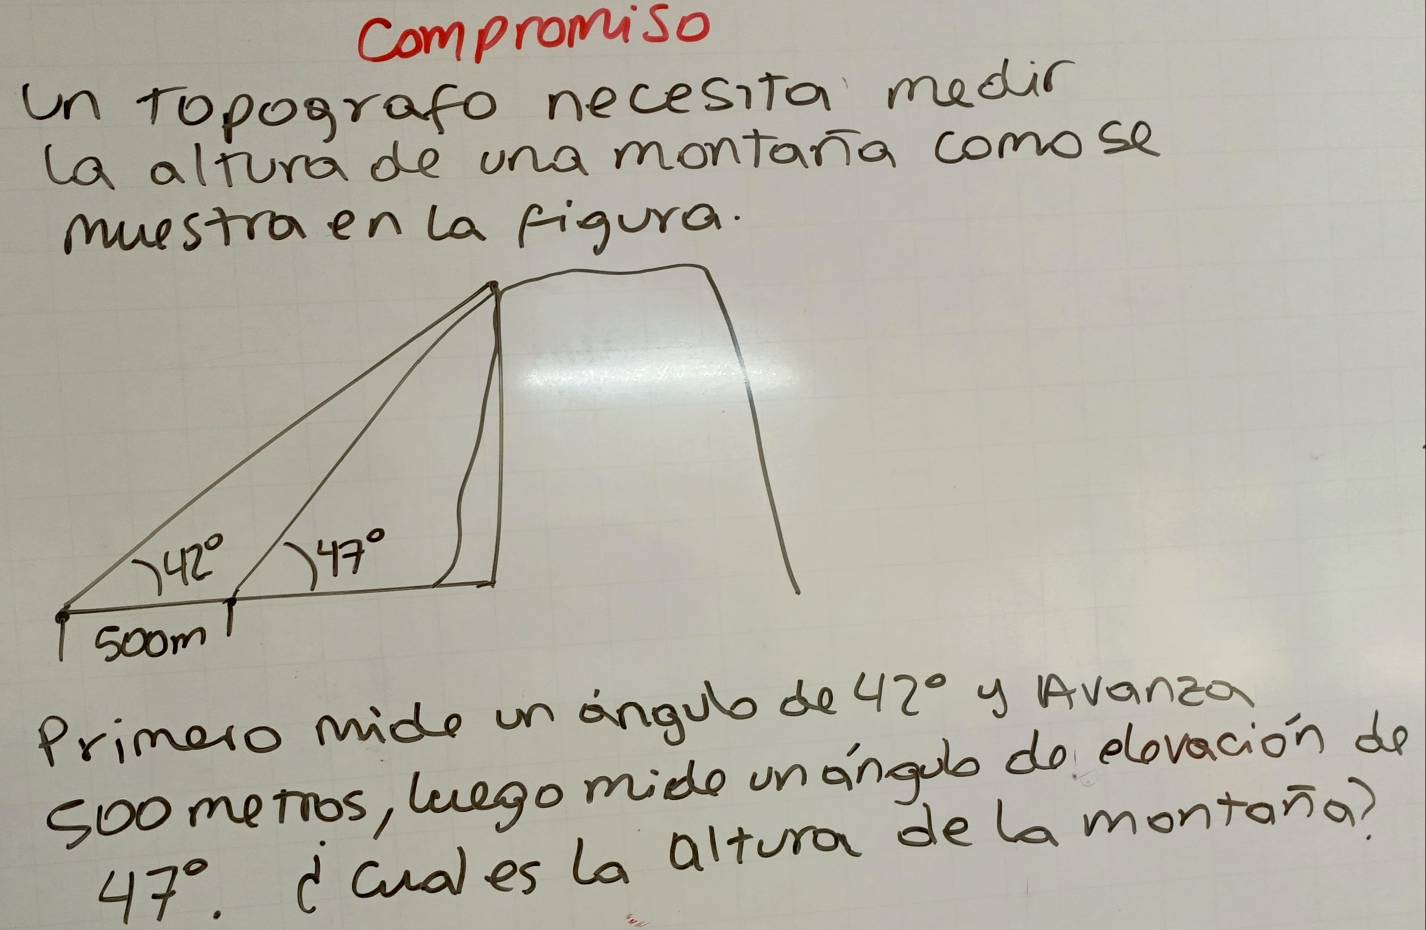 Compromiso
Un topografo necesita medir
la altura de una montaña como se
muestra en la figura.
42° 47°
500m
Primero mide un ángulo de 42° y Avanza
500 metros, luego mide un ángulo de elevación de
47°. ¿cual es la altura de la montaña?